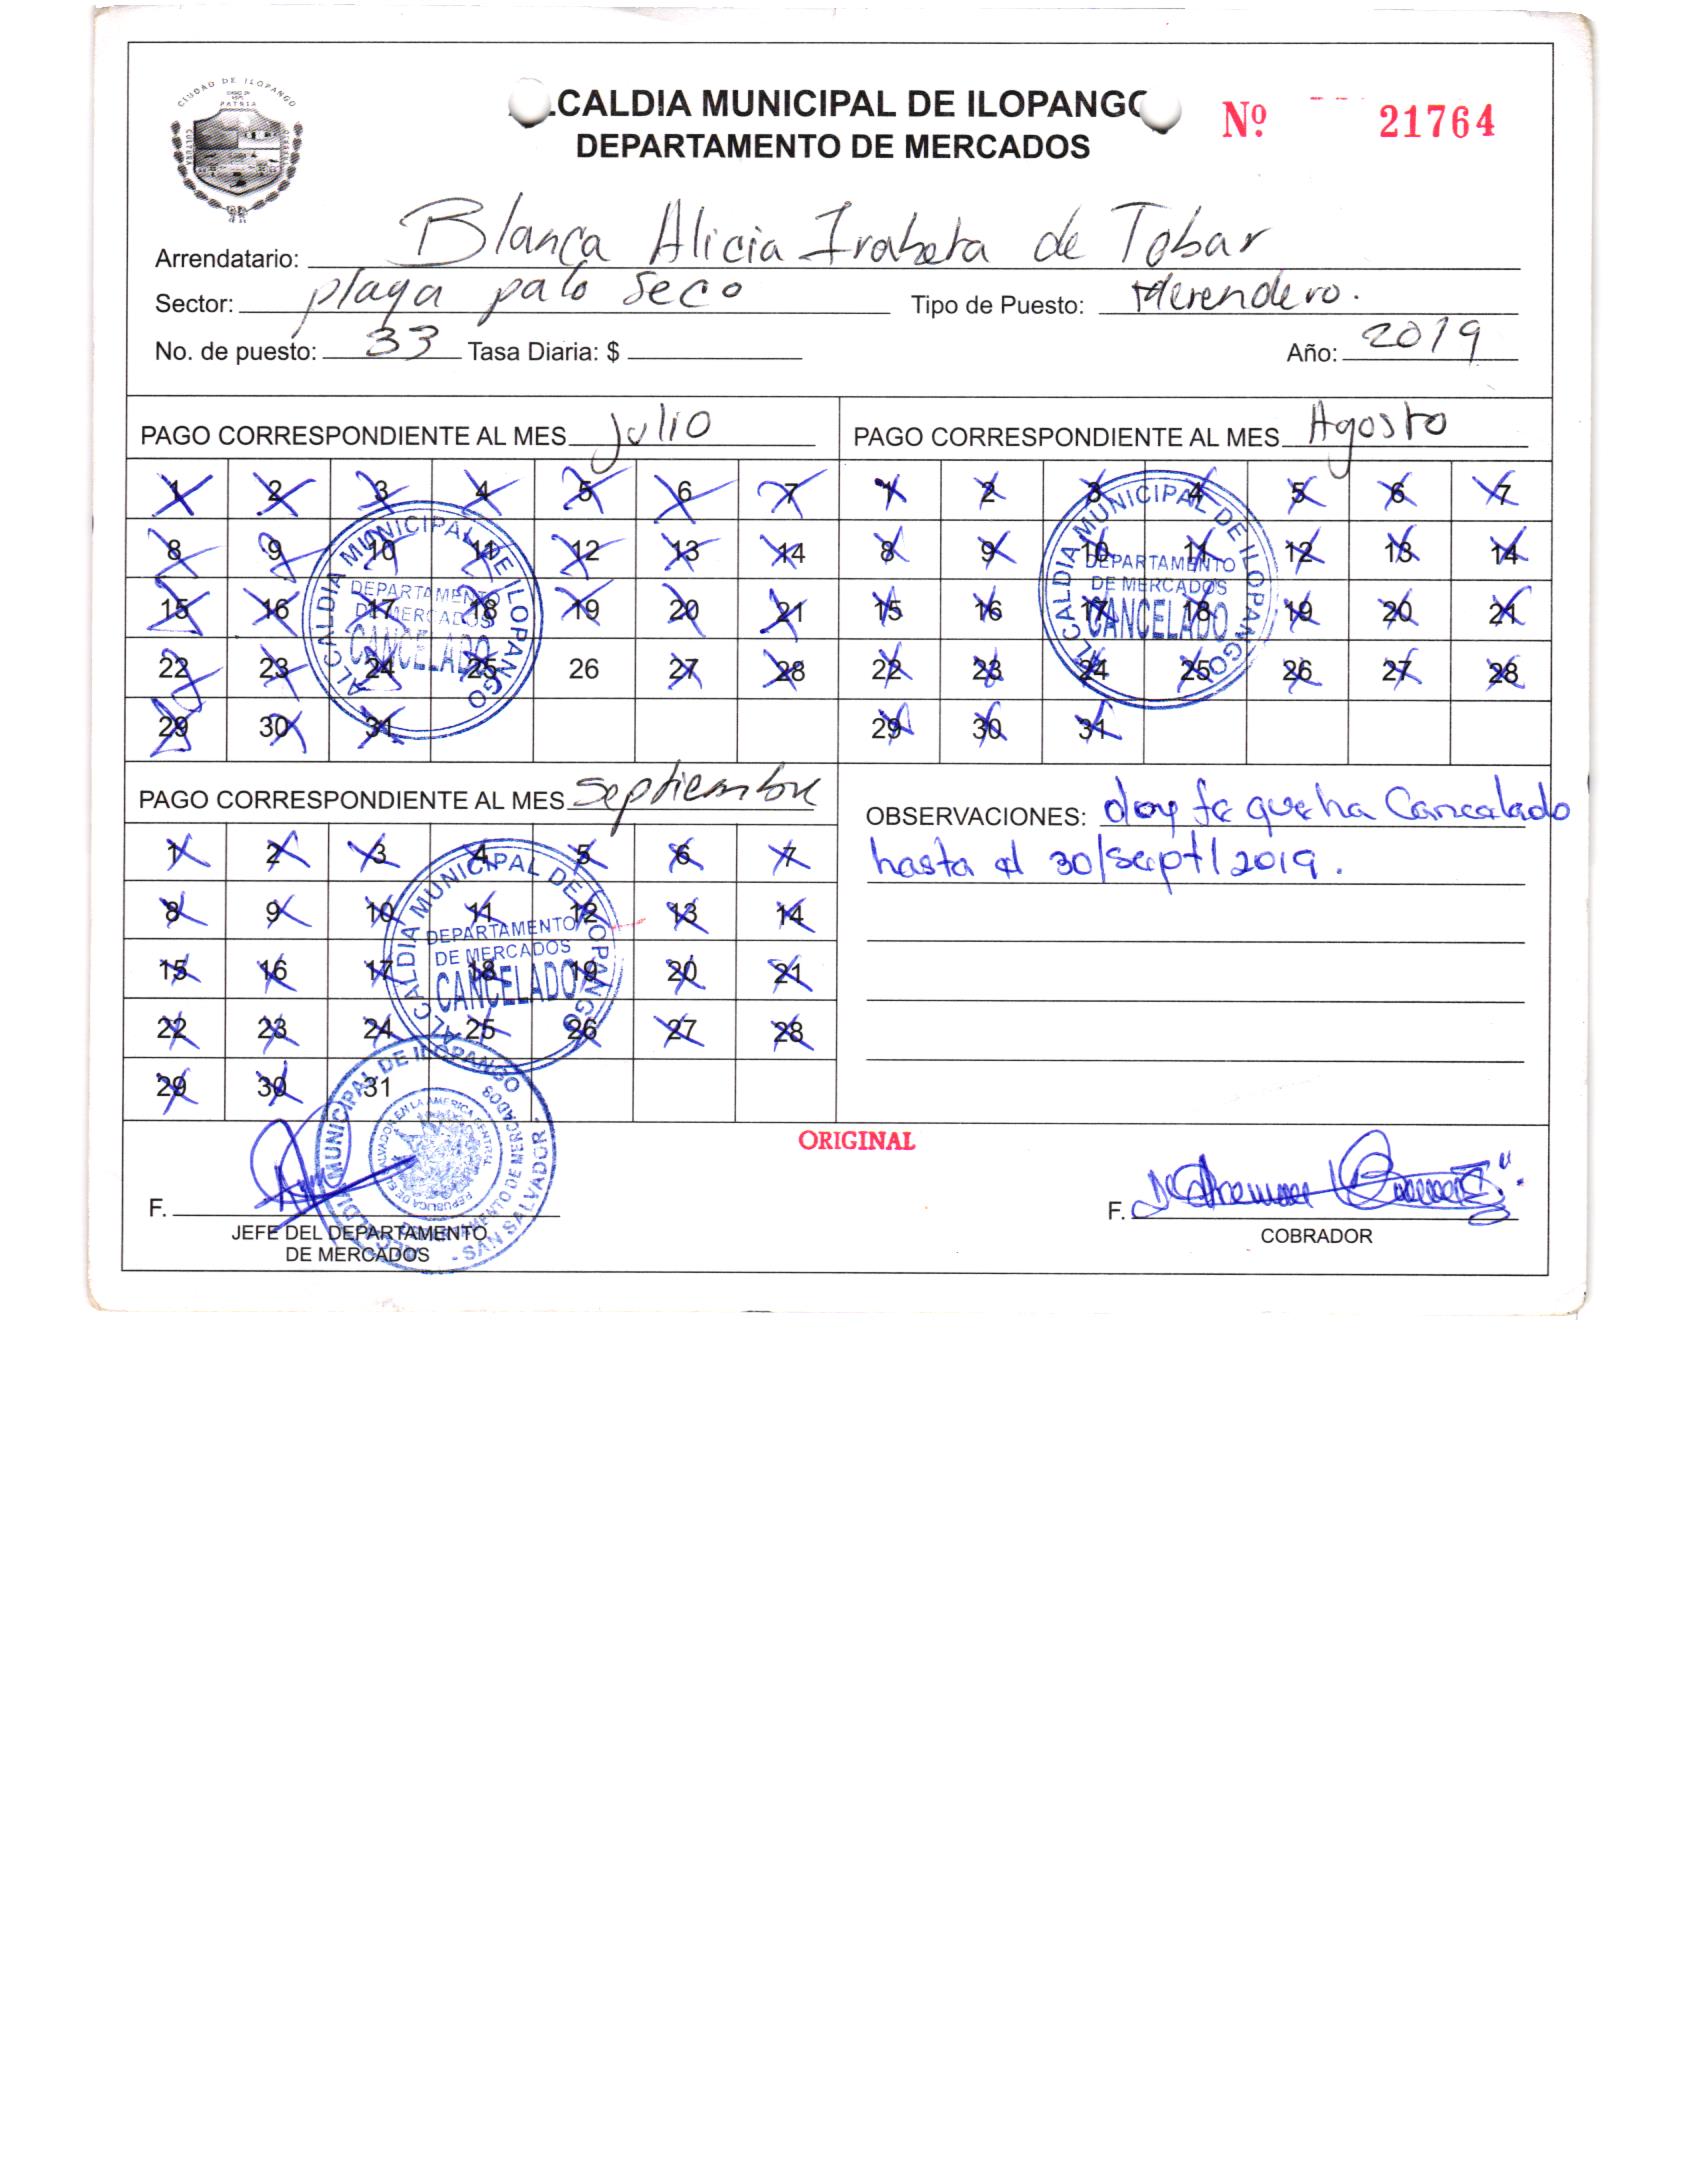 CIUDAD DE ILOPANGO
PATRIA
CULTURA
ALCALDIA MUNICIPAL DE ILOPANGO
Nº 21764
DEPARTAMENTO DE MERCADOS
Arrendatario: Blanca Alicia Iraheta de Tobar
Sector: playa palo seco Tipo de Puesto: Merendero.
No. de puesto: 33 Tasa Diaria: $ Año: 2019
PAGO CORRESPONDIENTE AL MES julio
1 2 3 4 5 6 7
8 9 10 11 12 13 14
15 16 17 18 19 20 21
22 23 24 25 26 27 28
29 30 31
ALCALDIA MUNICIPAL DE ILOPANGO
DEPARTAMENTO
DE MERCADOS
CANCELADO
PAGO CORRESPONDIENTE AL MES Agosto
1 2 3 4 5 6 7
8 9 10 11 12 13 14
15 16 17 18 19 20 21
22 23 24 25 26 27 28
29 30 31
ALCALDIA MUNICIPAL DE ILOPANGO
DEPARTAMENTO
DE MERCADOS
CANCELADO
PAGO CORRESPONDIENTE AL MES septiembre
1 2 3 4 5 6 7
8 9 10 11 12 13 14
15 16 17 18 19 20 21
22 23 24 25 26 27 28
29 30 31
ALCALDIA MUNICIPAL DE ILOPANGO
DEPARTAMENTO
DE MERCADOS
CANCELADO
OBSERVACIONES: doy fe que ha Cancelado
hasta el 30/sept/2019.
ORIGINAL
ALCALDIA MUNICIPAL DE ILOPANGO
DEPARTAMENTO DE MERCADOS
REPUBLICA DE EL SALVADOR EN LA AMERICA CENTRAL
- SAN SALVADOR -
F.
JEFE DEL DEPARTAMENTO
DE MERCADOS
F.
COBRADOR